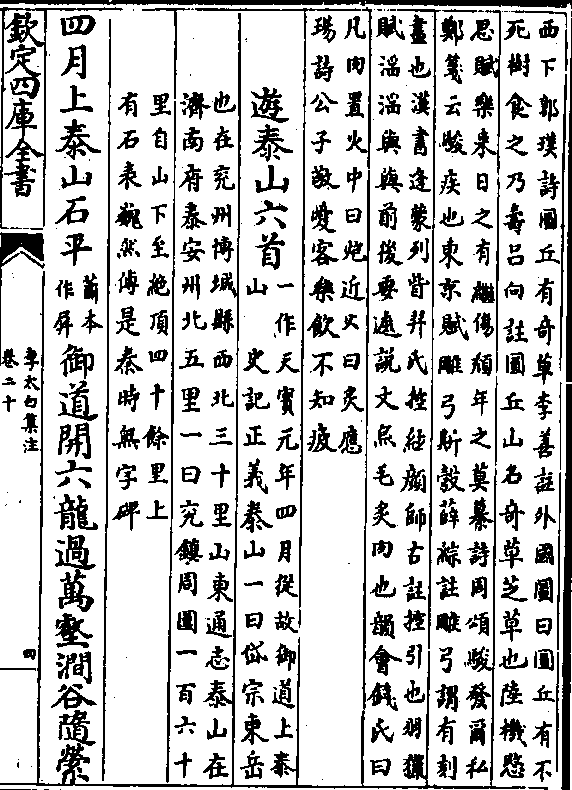 西下郭璞詩圓丘有奇草李善註外國圖曰圓丘有不
死樹食之乃壽呂向註圓丘山名奇草芝草也陸機愍
思賦樂来日之有繼傷頽年之莫纂詩周頌駿發爾私
鄭箋云駿疾也東京賦雕弓斯彀薛綜註雕弓謂有刻
畫也漢書逢蒙列眥羿氏控弦顔師古註控引也羽獵
賦淫淫與與前後要遮説文炰毛炙肉也韻會錢氏曰
凡肉置火中曰炮近火曰炙應
瑒詩公子敬愛客樂飲不知疲
遊泰山六首
一作天寶元年四月從故御道上泰
山　史記正義泰山一曰岱宗東岳
也在兖州博城縣西北三十里山東通志泰山在
濟南府泰安州北五里一曰兖鎮周圍一百六十
里自山下至絶頂四十餘里上
有石表巍然傳是秦時無字碑
四月上泰山石平蕭本作屏御道開六龍過萬壑澗谷隨縈
欽定四庫全書
李太白集注
卷二十
四